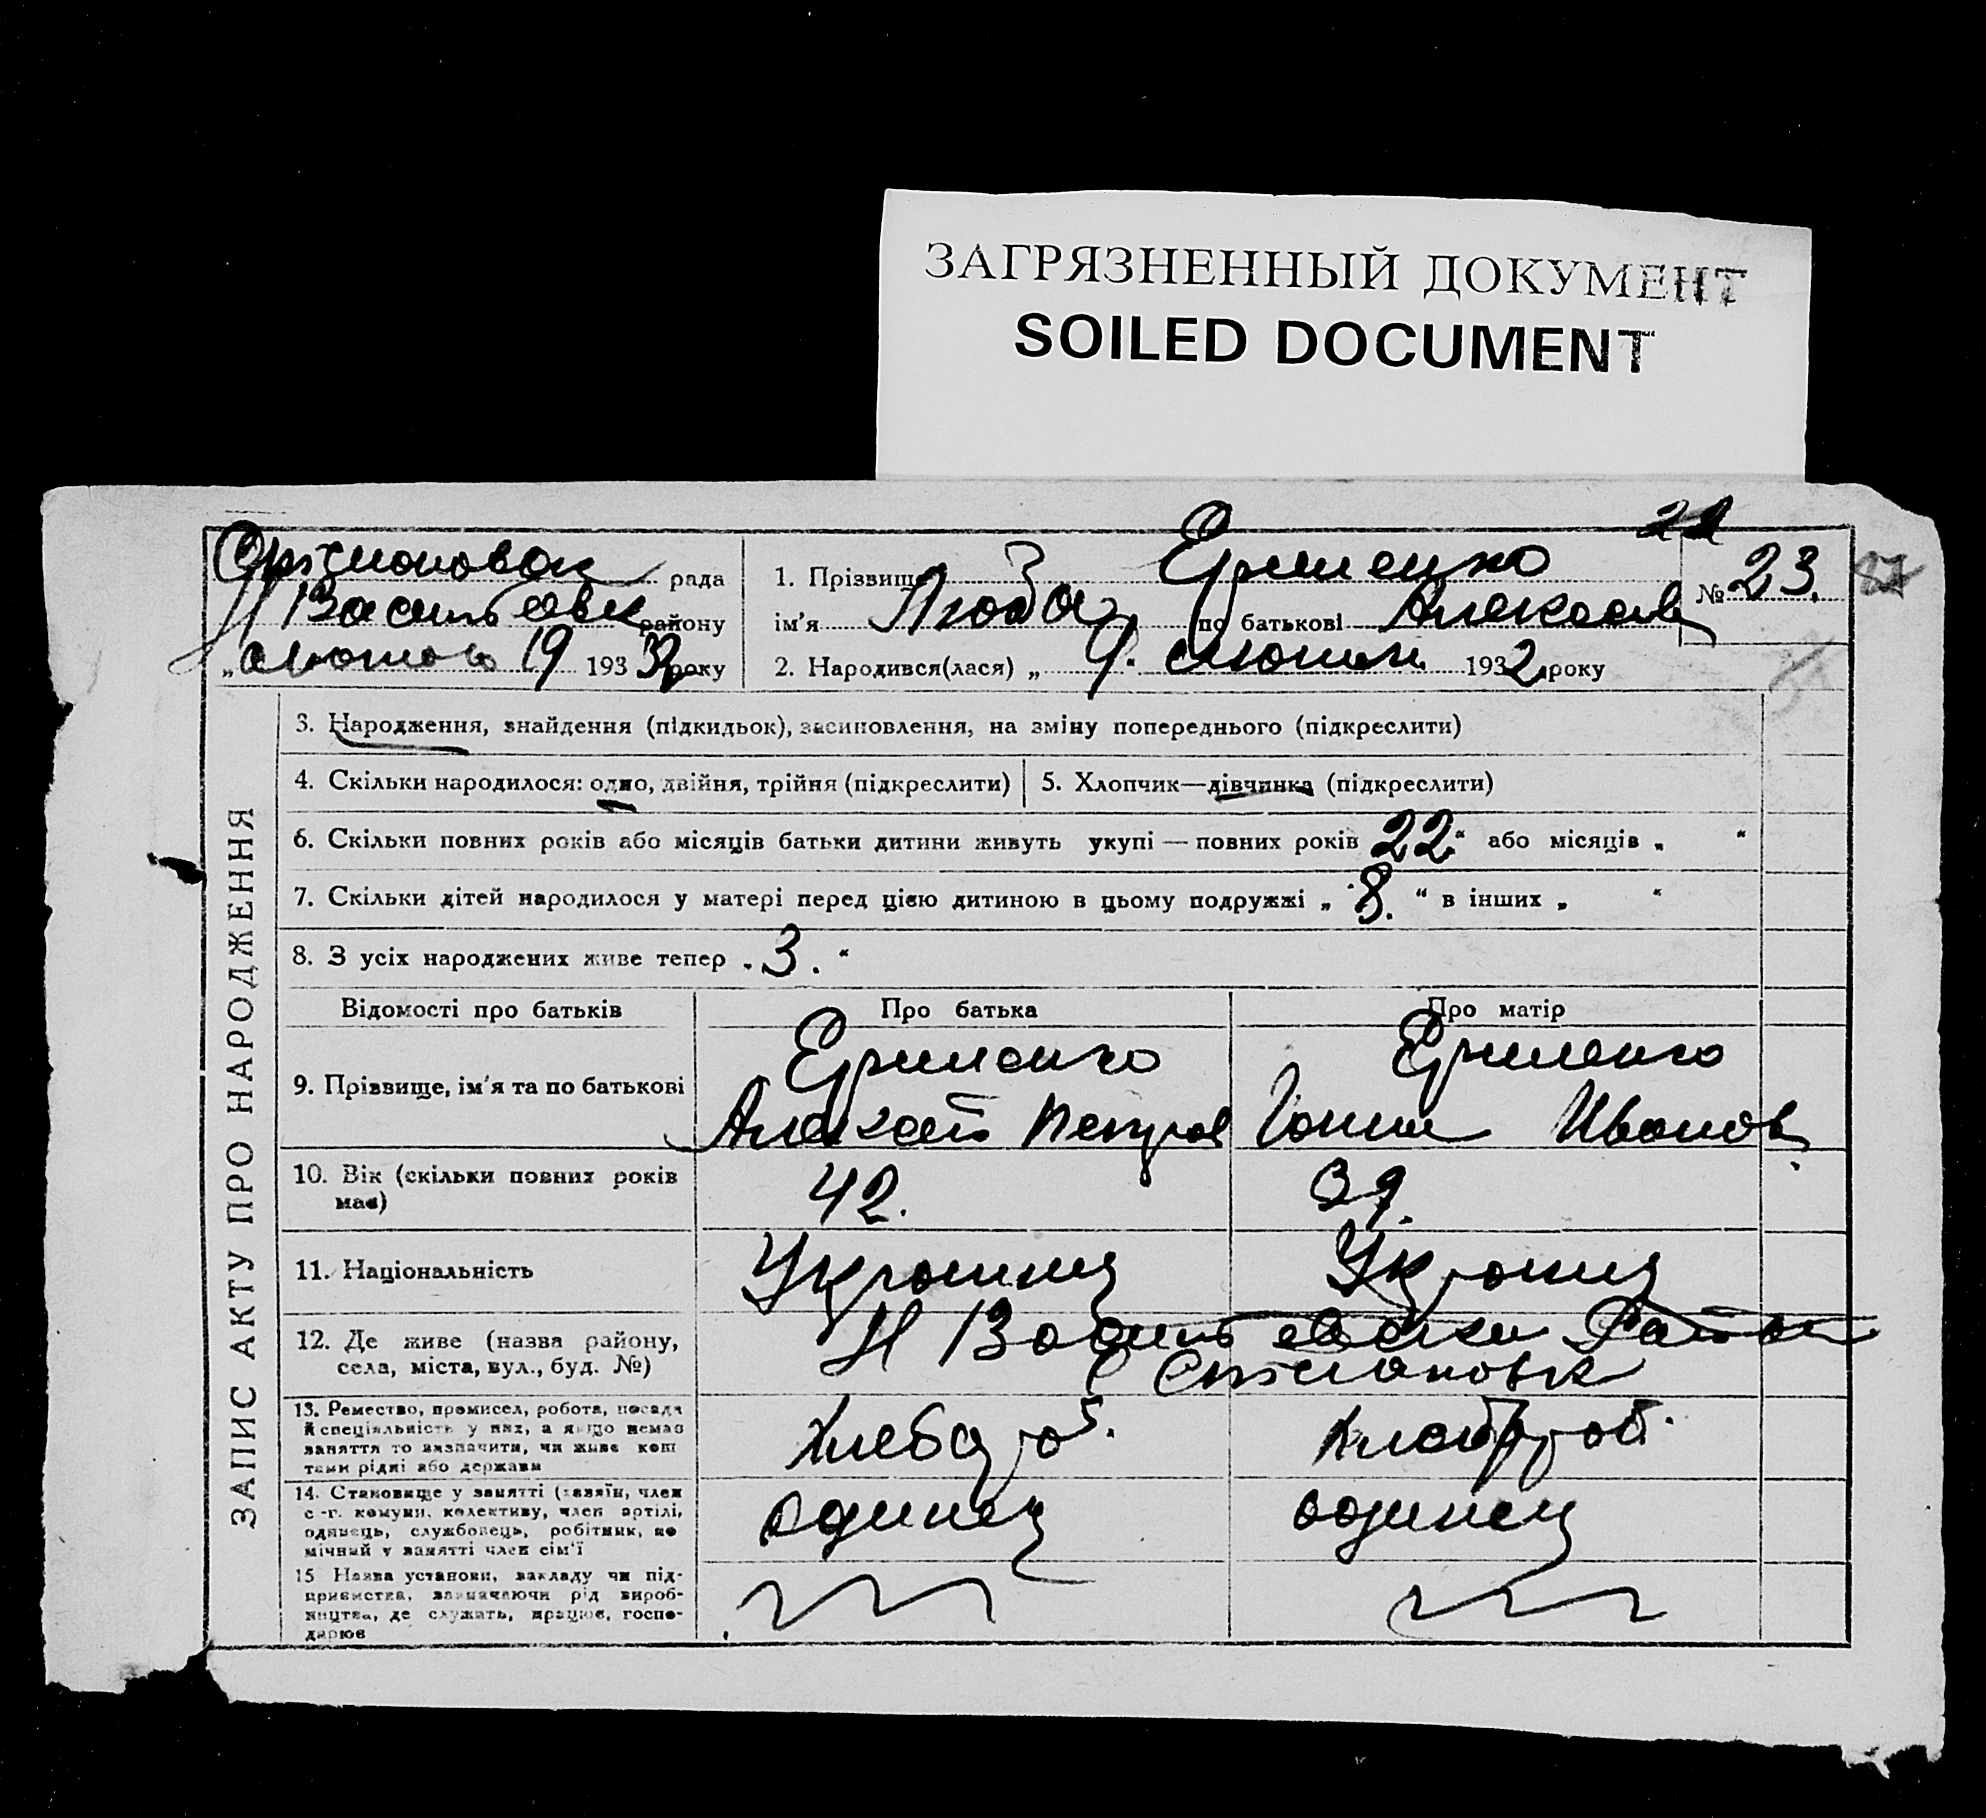 ЗАГРЯЗНЕННЫЙ ДОКУМЕНТ
SOILED DOCUMENT
ЗАПИС АКТУ ПРО НАРОДЖЕННЯ
рада
району
„ лютого 19 1932 року
1. Прізвище Ермменко
ім'я Люба по батькові Алексеев
№ 23.
2. Народився(лася) „ 9. лютого 1932 року
3. Народження, знайдення (підкидьок), засиновлення, на зміну попереднього (підкреслити)
4. Скільки народилося: одно, двійня, трійня (підкреслити)
5. Хлопчик—дівчинка (підкреслити)
6. Скільки повних років або місяців батьки дитини живуть укупі — повних років 22 “ або місяців „ “
7. Скільки дітей народилося у матері перед цією дитиною в цьому подружжі „ 8. “ в інших „ “
8. З усіх народжених живе тепер „ 3. “
Відомості про батьків Про батька Про матір
9. Прізвище, ім'я та по батькові
Алексей Петров Иванов
10. Вік (скільки повних років має) 42. 39.
11. Національність
12. Де живе (назва району, села, міста, вул., буд. №)
Н Васильевски Район
13. Ремество, промисел, робота, посада й спеціяльність у них, а якщо немає заняття то визначити, чи живе коштами рідні або держави
Хлебороб. Хлебороб.
14. Становище у занятті (хазяїн, член с.-г. комуни, колективу, член артілі, одинець, службовець, робітник, помічний у занятті член сім'ї
одинец одинец
15 Назва установи, закладу чи підприємства, зазначаючи рід виробництва, де служить, працює, господарює